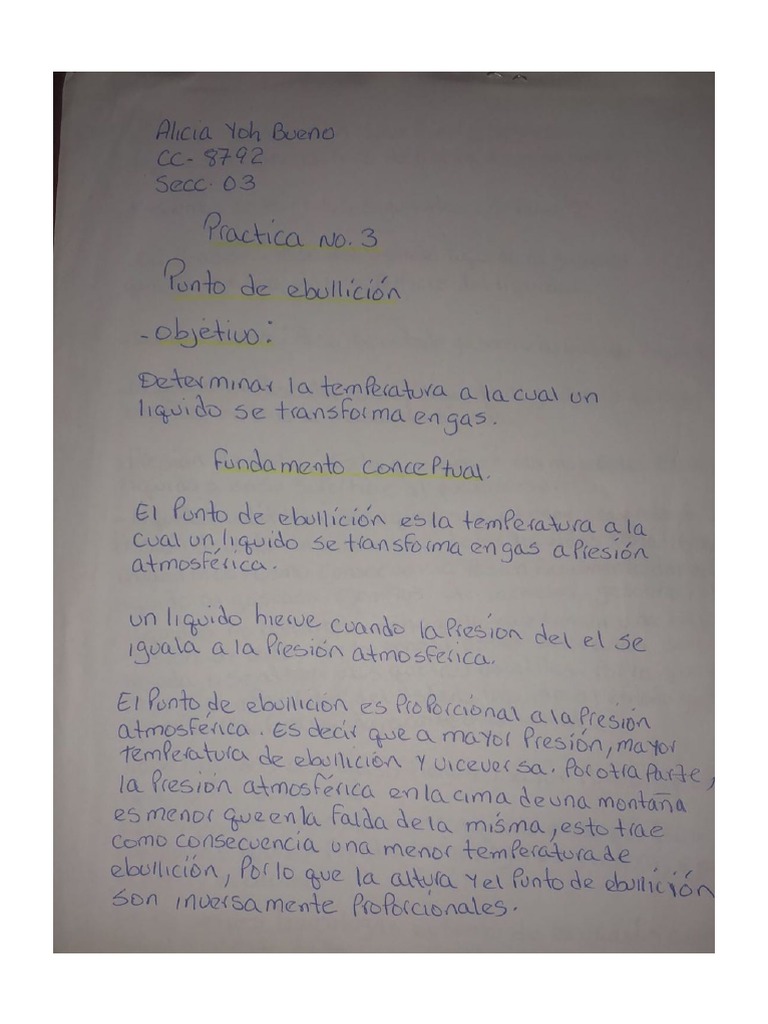 Alicia Yoh Bueno
CC- 8792
Secc. 03
Practica No. 3
Punto de ebullición
- Objetivo:
Determinar la temperatura a la cual un
liquido se transforma en gas.
Fundamento conceptual.
El Punto de ebullición es la temperatura a la
cual un liquido se transforma en gas a Presión
atmosférica.
un liquido hierve cuando la Presion del el se
iguala a la Presión atmosferica.
El Punto de ebullicion es Proporcional a la Presión
atmosférica. Es decir que a mayor Presión, mayor
temperatura de ebullición y viceversa. Por otra Parte,
la Presión atmosférica en la cima de una montaña
es menor que en la falda de la misma, esto trae
como consecuencia una menor temperatura de
ebullición, Por lo que la altura y el Punto de ebullición
son inversamente Proporcionales.